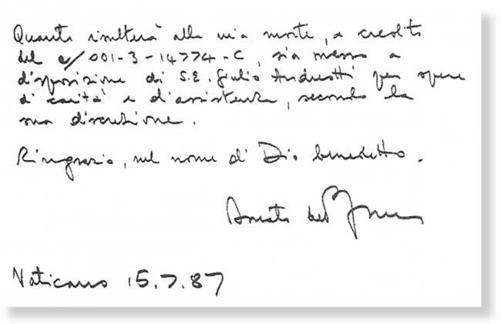 Quanto risulterà alla mia morte, a credito
del c/ 001-3-14774-C, sia messo a
disposizione di S.E. Giulio Andreotti per opere
di carità e d'assistenza, secondo la
sua discrezione.
Ringrazio, nel nome di Dio benedetto.
Donato de
Vaticano 15.7.87